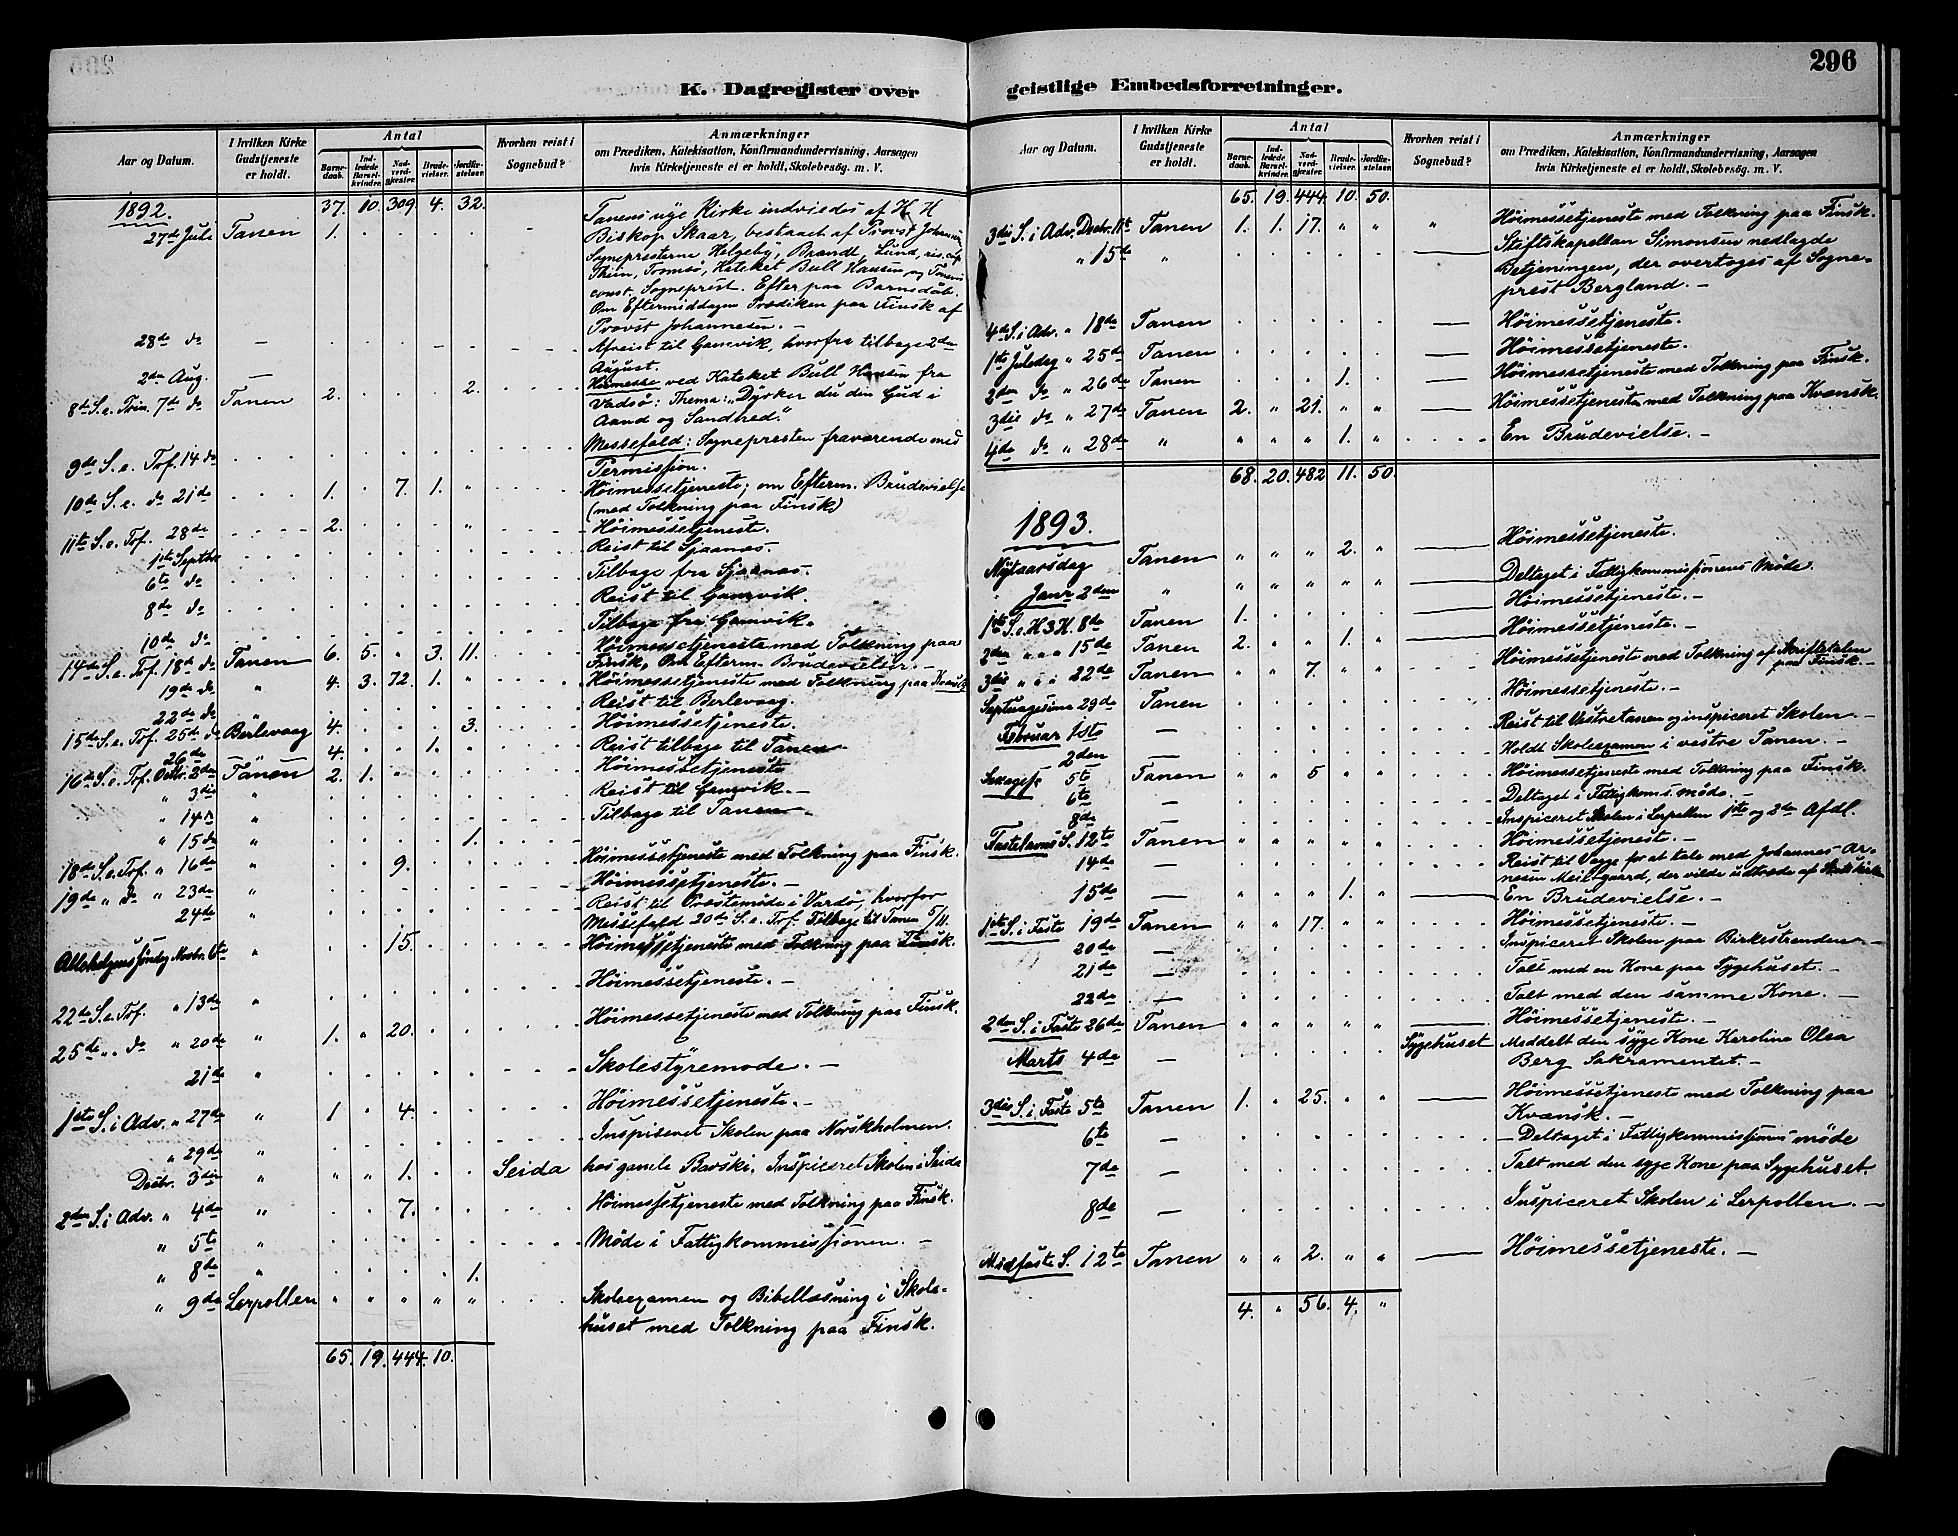 296
K. Dagregister over
Aar og Datum.
I hvilken Kirke Gudstjeneste er holdt.
Antal
Barnedaab. Indledede Barselkvinder. Nadverdgjester. Brudevielser. Jordfæstelser.
Hvorhen reist i Sognebud?
Anmærkninger
om Prædiken, Katekisation, Konfirmandundervisning, Aarsagen
hvis Kirketjeneste ei er holdt, Skolebesøg. m. V.
1892. 37. 10. 309. 4. 32. Tanens nye Kirke indviedes af H. H.
27de Juli Tanen 1. Biskop Skaar, bestaaet af Provst Johannesen
Sogneprestene Helgeby, Brandt, Lund, res. cap.
Tromsø, Kateket Bull Hansen og Tanens
const. Sogneprest. Efter paa Barnedåb.
Om Eftermiddagen Prædiken paa Finsk af
Provst Johannesen. —
28de do — Afreist til Gamvik, hvorfra tilbage 2den
2den Aug. — August.
8de S. e. Trin. 7de do Tanen 2. 2. Høimesse ved Kateket Bull Hansen fra
Vadsø: Thema: "Dyrker du den Gud i
Aand og Sandhed."
9de S. e. Tof. 14 do Messefald: Sognepresten fraværende med
Permission.
10de S. e. do 21de 1. 7. 1. " Høimessetjeneste; om Efterm. Brudevielse
(med Tolkning paa Finsk)
11te S. e. Tof. 28de 2. " Høimessetjeneste.
1ste Septbr Reist til Sjaanes.
6te do Tilbage fra Sjaanes.
8de do Reist til Gamvik.
10de do Tilbage fra Gamvik.
14de S. e. Tof. 18de do Tanen 6. 5. " 3. 11. Høimessetjeneste med Tolkning paa
Finsk. Om Efterm. Brudevielser. —
19de do " 4. 3. 72. 1. " Høimessetjeneste med Tolkning paa Kvænsk
22de do " Reist til Berlevaag.
15de S. e. Tof. 25de do Berlevaag 4. 3. Høimessetjeneste.
26de 4. 1. " Reist tilbage til Tanen
16de S. e. Tof. Octbr. 2den Tanen 2. 1. " " " Høimessetjeneste
" 3die " Reist til Gamvik. —
" 14de " Tilbage til Tanen.
" 15de " 1.
18de S. e. Tof. " 16de " 9. Høimessetjeneste med Tolkning paa Finsk.
19de " do " 23de " Høimessetjeneste. —
24de " Reist til Præstemøde i Vardø, hvorfor
Messefald 20de S. e. Tof. Tilbage til Tanen 5/11.
Allehelgens Søndag Novbr. 6te " 15. Høimessetjeneste med Tolkning paa Finsk.
22de S. e. Tof. " 13de " Høimessetjeneste. —
25de " do " 20de " 1. " 20. Høimessetjeneste med Tolkning paa Finsk.
21de " Skolestyremøde. —
1ste S. i Adv. " 27de " 1 " 4. Høimessetjeneste. —
" 29de " Inspiceret Skolen paa Norskholmen.
Decbr. 3die " " " 1. Seida hos gamle Barski, Inspiceret Skolen i Seida
2den S. i Adv. " 4de " 7. Høimessetjeneste med Tolkning paa Finsk.
" 5te " Møde i Fattigkommissionen. —
" 8de " 1.
" 9de Lerpollen " " " " " Skoleexamen og Bibellæsning i Skole-
huset med Tolkning paa Finsk.
65. 19. 444. 10.
geistlige Embedsforretninger.
Aar og Datum.
I hvilken Kirke Gudstjeneste er holdt.
Antal
Barnedaab. Indledede Barselkvinder. Nadverdgjester. Brudevielser. Jordfæstelser.
Hvorhen reist i Sognebud?
Anmærkninger
om Prædiken, Katekisation, Konfirmandundervisning, Aarsagen
hvis Kirketjeneste ei er holdt, Skolebesøg. m. V.
65. 19. 444. 10. 50.
3die S. i Adv. Decbr. 11te Tanen 1. 1. 17. " " " Høimessetjeneste med Tolkning paa Finsk.
" 15de " — Stiftskapellan Simonsen nedlagde
Betjeningen, der overtoges af Sogne-
prest Bergland. —
4de S. i Adv. " 18de Tanen — Høimessetjeneste.
1ste Juledag " 25de Tanen — Høimessetjeneste.
2den do " 26de Tanen 1. — Høimessetjeneste med Tolkning paa Finsk.
3die do " 27de Tanen 2. " 21. " " — Høimessetjeneste med Tolkning paa Kvænsk.
4de do " 28de " " " " 1. " En Brudevielse. —
68. 20. 482 11. 50.
1893.
Nytaarsdag Tanen " " " 2. " — Høimessetjeneste.
Janr 2den " " " " " " — Deltaget i Fattigkommissionens Møde.
1ste S. e. H 3 K. 8de Tanen 1. — Høimessetjeneste. —
2den " " " 15de Tanen 2. " 1. " — Høimessetjeneste. —
3die " " " 22de Tanen " " 7. " " Høimessetjeneste med Tolkning af Skriftetalen
paa Finsk. —
Septuagesima 29de Tanen Høimessetjeneste. —
Februar 1ste — Reist til Vestretanen og inspiceret Skolen. —
2den — Holdt Skoleexamen i vestre Tanen. —
Sexages. 5te Tanen " " 5 " " Høimessetjeneste med Tolkning paa Finsk.
6te — Deltaget i Fattigkoms. møde. —
8de — Inspiceret Skolen i Lerpollen 1ste og 2de Afdl.
Fastelavns S. 12te Tanen Høimessetjeneste. —
14de — Reist til Vagge for at tale med Johannes Ar-
nesen Meilgaard, der vilde udtræde af Statskirken
15de — " " " 1. " — En Brudevielse. —
1ste S. i Faste 19de Tanen " " 17. " " Høimessetjeneste. —
20de — Inspiceret Skolen paa Birkestranden —
21de — Talt med en Kone paa Sygehuset. —
22de — Talt med den samme Kone. —
2den S. i Faste 26de Tanen " " " " " — Høimessetjeneste. —
Marts 4de — Sygehuset Meddelt den syge Kone Karoline Olea
Berg Sakramentet. —
3die S. i Faste 5te Tanen 1. " 25. " " — Høimessetjeneste med Tolkning paa
Kvænsk. —
6te — — Deltaget i Fattigkommissions møde
7de — Talt med den syge Kone paa Sygehuset.
8de — Inspiceret Skolen i Lerpollen. —
Midfaste S. 12te Tanen " " 2. " " — Høimessetjeneste. —
4. " 56. 4. "